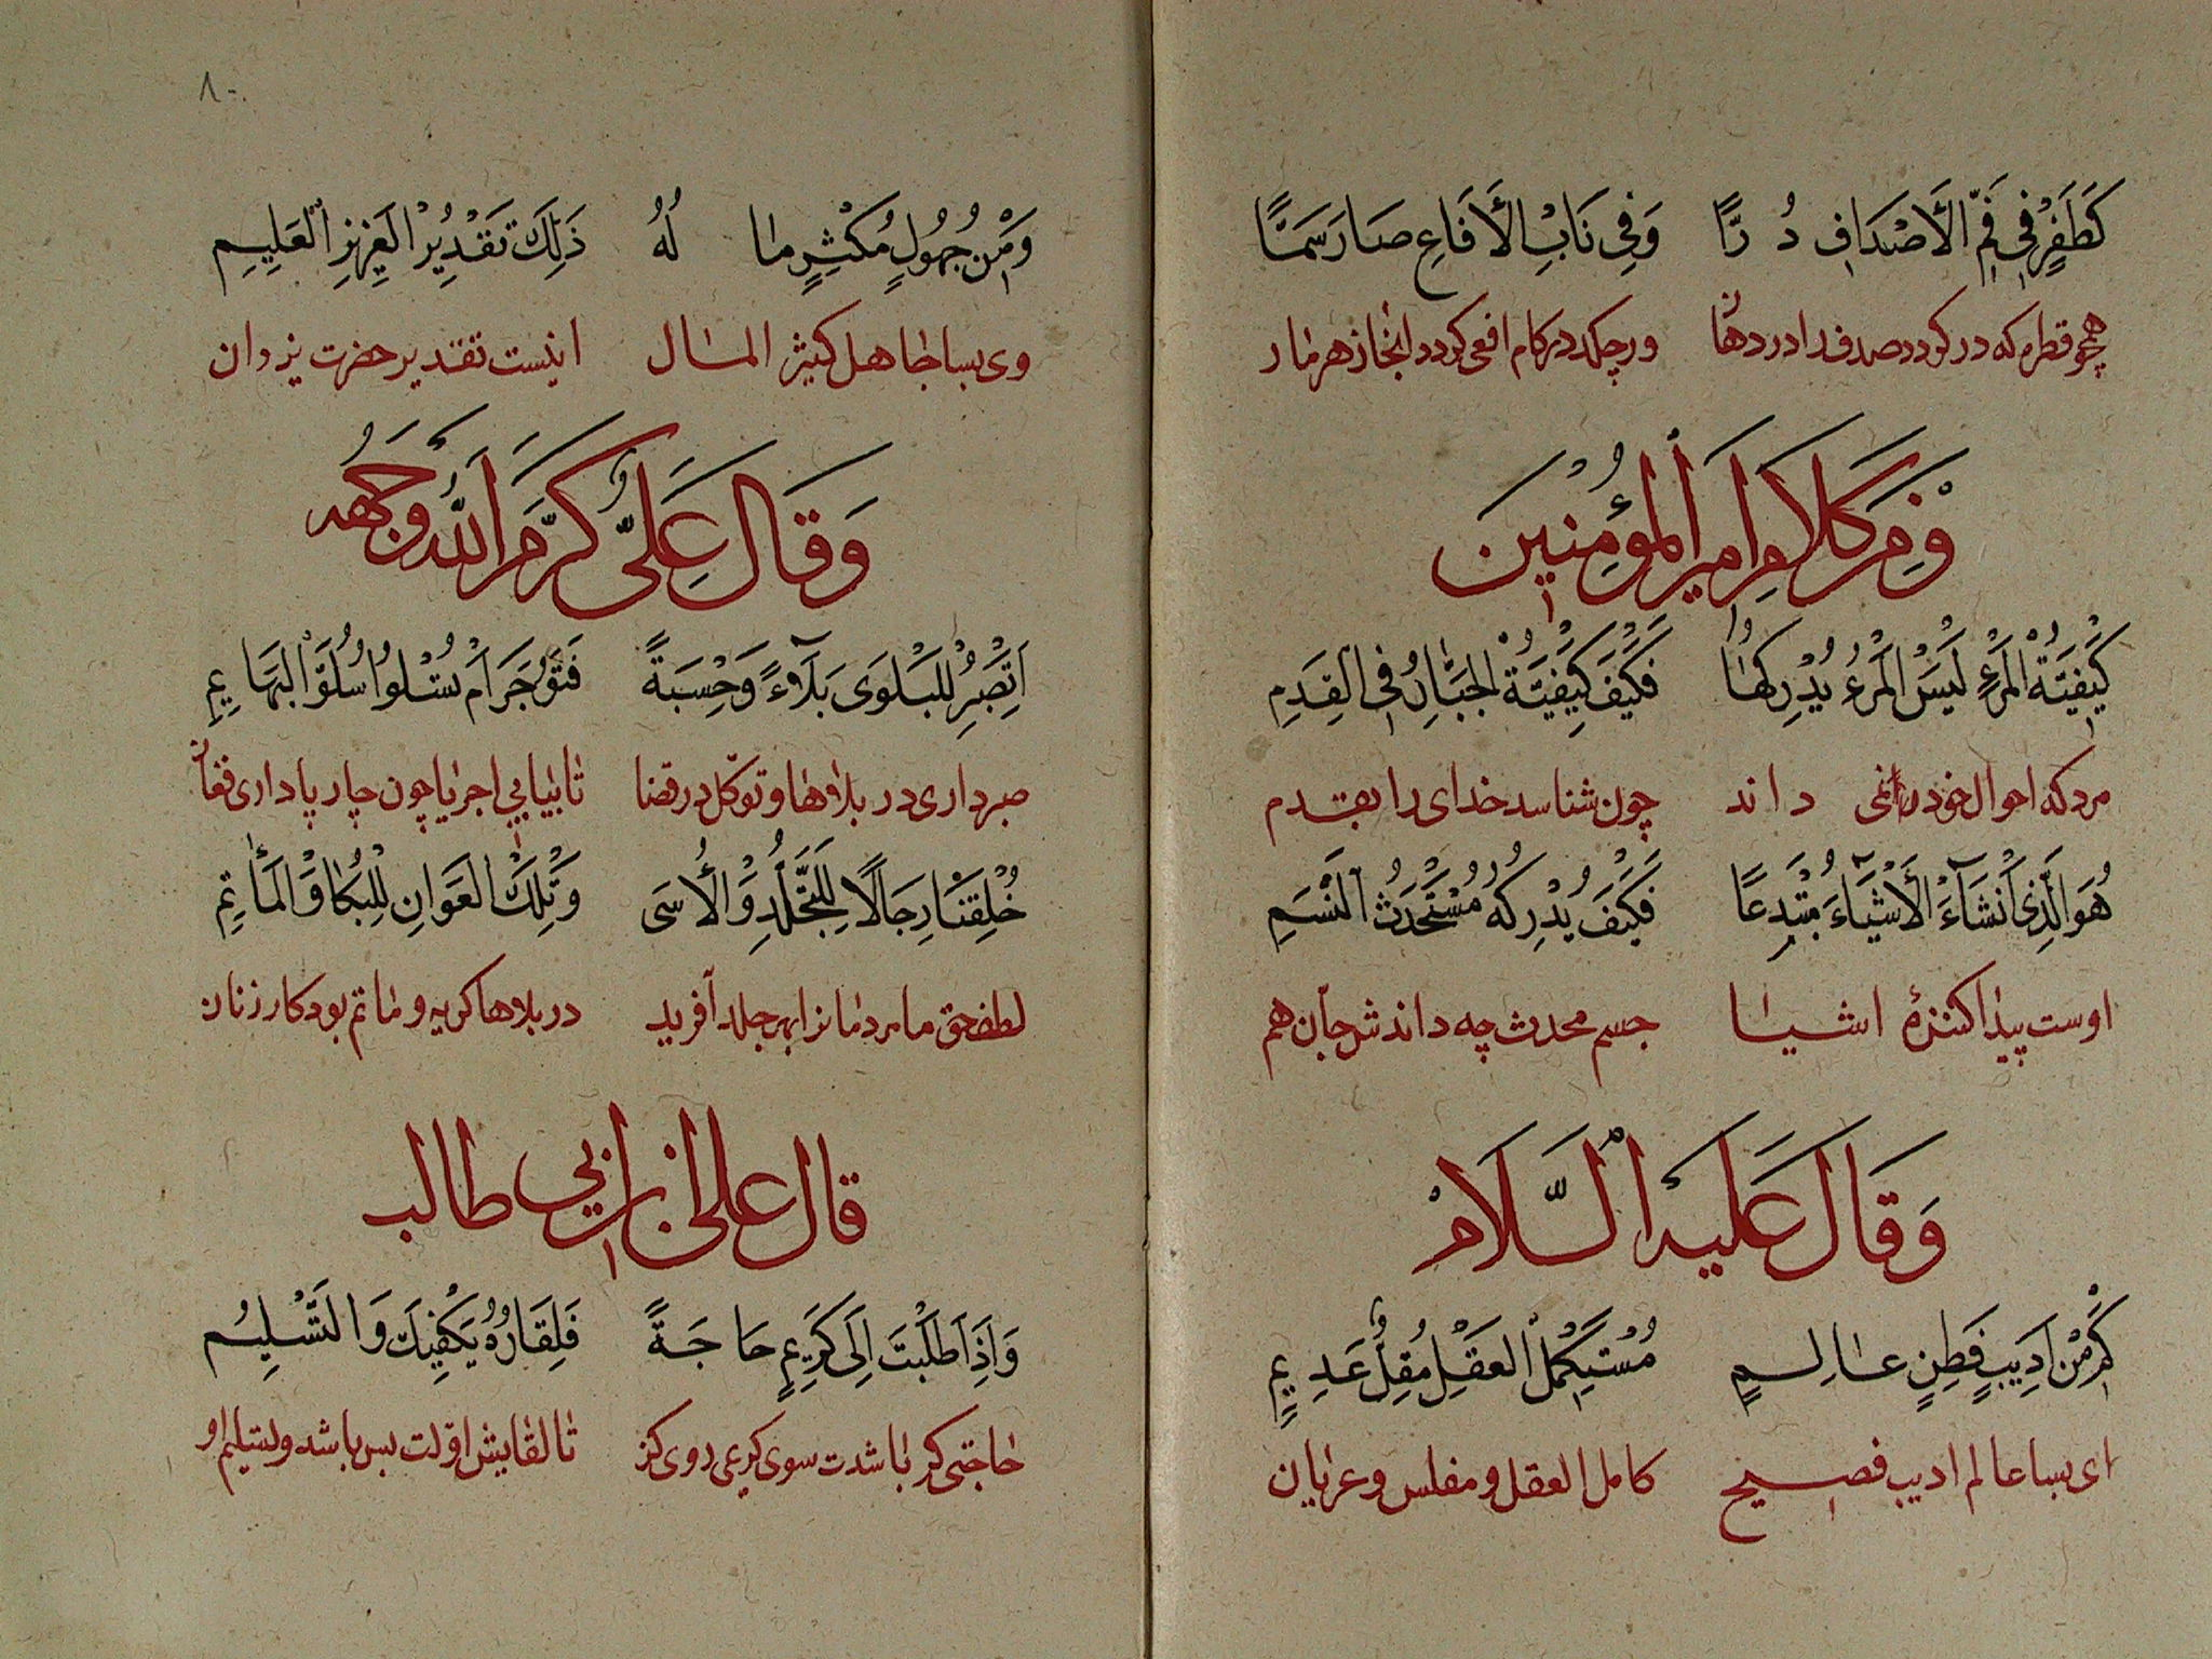 كَقَطْرٍ فِي فَمِ الْأَصْدَافِ دُرًّا وَفِي نَابِ الْأَفَاعِ صَارَ سَمًّا
همچو قطره که در کودد صدف را در دهان ورچکد در کام افعی کردد انجا زهر مار
وَمِنْ كَلَامِ اَمِيرِ الْمُؤْمِنِينَ
كَيْفِيَّةُ الْمَرْءِ لَيْسَ الْمَرْءُ يُدْرِكُهَا فَكَيْفَ كَيْفِيَّةُ الْجَبَّارِ فِي الْقِدَمِ
مرد که احوال خود را نمی داند چون شناسد خدای را بقدم
هُوَ الَّذِي اَنْشَأَ الْأَشْيَاءَ مُبْتَدِعًا فَكَيْفَ يُدْرِكُهُ مُسْتَحْدَثُ النَّسَمِ
اوست پیدا کننزهٔ اشیا جسم محدث چه داندش جان هم
وَقَالَ عَلَيْهِ السَّلَامْ
كَمْ مِنْ اَدِيبٍ فَطِنٍ عَالِمٍ مُسْتَكْمِلُ الْعَقْلِ مُقِلٌّ عَدِيمٍ
ای بسا عالم ادیب فصیح کامل العقل و مفلس و عریان
۸۰
وَمِنْ جَهُولٍ مُكْثِرٍ مَا لَهُ ذَلِكَ تَقْدِيرُ الْعَزِيزِ الْعَلِيمِ
وی بسا جاهل کثیر المال اینست تقدیر حضرت یزدان
وَقَالَ عَلِيٌّ كَرَّمَ اللَّهُ وَجْهَهُ
اَتَصْبِرُ لِلْبَلْوَى بَلَاءً وَحِسْبَةً فَتُؤْجَرَ اَمْ تَسْلُوا سُلُوَّ الْبَهَايِمِ
صبر داری در بلاها و توکل در قضا تا بیابی اجر یا چون چارپا داری فغان
خُلِقْنَا رِجَالًا لِلتَّجَلُّدِ وَالْأُسَى وَتِلْكَ الْغَوَانِ لِلْبُكَا وَالْمَآتِمِ
لطف حق ما مردمانرا بهر جلد آفرید در بلاها کریه و ماتم بود کار زنان
قال علی ابن ابی طالب
وَاِذَا طَلَبْتَ اِلَى كَرِيمٍ حَاجَةً فَلِقَاؤُهُ يَكْفِيكَ وَالتَّسْلِيمُ
حاجتی کر باشدت سوی کریمی روی کن تا لقایش اولت بس باشد و تسلیم او